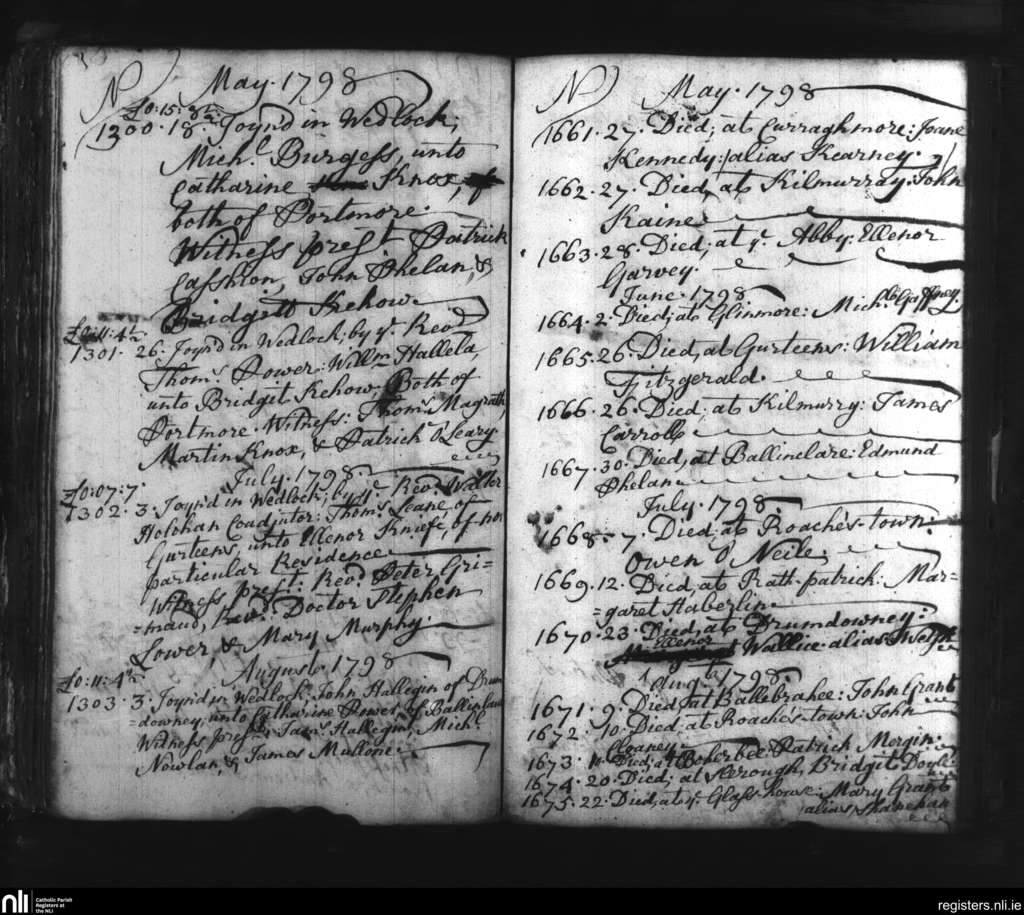 No May. 1798
£0:15:8½
1300. 18. Joynd in Wedlock,
Michl. Burgess, unto
Catharine Knox, of
both of Portmore.
Witness prest. Patrick
Cashion, John Phelan, &
Bridgitt Kehow.
£0:11:4½
1301. 26. Joynd in Wedlock, by ye. Revd.
Thoms. Power: Willm. Hallela,
unto Bridgit Kehow, Both of
Portmore. Witness: Thoms. Magrath,
Martin Knox, & Patrick O'Leary
July. 1798
£0:07:7.
1302. 3. Joynd in Wedlock, by ye. Revd. Walter
Holohan Coadjutor: Thoms. Leane, of
Gurteens, unto Ellenor Knife, of no
particular Residence
Witness prest. Revd. Peter Gri=
=maud, Revd. Doctor Stephen
Lower, & Mary Murphy.
August. 1798
£0:11:4½
1303. 3. Joynd in Wedlock: John Hallegin of Drum
=downey, unto Catharine Power of
Witness prest. Hallegin, Michl.
Nowlan, & James Mullone.
No May. 1798
1661. 27. Died, at Curraghmore: Joane
Kennedy: alias Kearney.
1662. 27. Died, at Kilmurray: John
Kaine.
1663. 28. Died, at ye. Abby: Ellenor
Garvey.
June. 1798
1664. 2. Died, at Glinmore: Michl. Gaffney.
1665. 26. Died, at Gurteens: William
Fitzgerald.
1666. 26. Died, at Kilmurry: James
Carroll
1667. 30. Died, at Ballinclare: Edmund
Phelan
July. 1798
1668. 7. Died, at Roaches-town:
Owen O'Neile
1669. 12. Died, at Rath-patrick: Mar=
=garet Haberlin.
1670. 23. Died, at Drumdowney:
Ellenor Wallice alias Welsh
Augt. 1798.
1671. 9. Died, at Ballebrahee: John Grant
1672. 10. Died, at Roaches-town: John
Cloaney
1673. 11. Died, at Boherbee: Patrick Morgin.
1674. 20. Died, at Bridgit Doyle
1675. 22. Died, at ye. Glass-house: Mary Grant
alias Shanehan
nli
Catholic Parish
Registers at
the NLI
registers.nli.ie